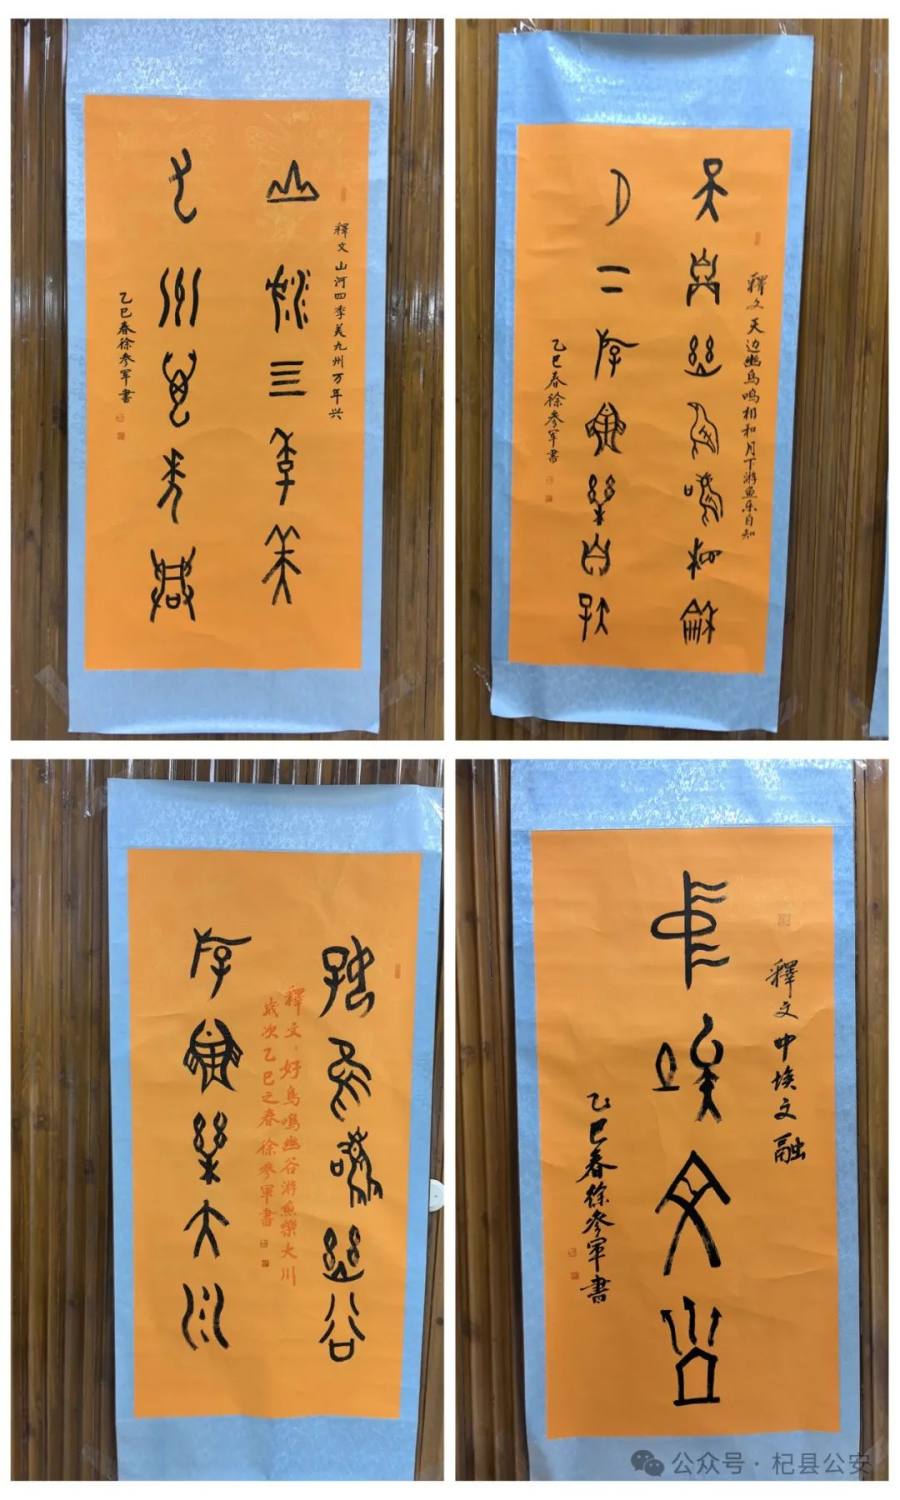 釋文 山河四季美九州万年兴
山河四季美
九州万年兴
乙巳春徐参军書
釋文 天边幽鸟鸣相和月下游鱼乐自知
天边幽鸟鸣相和
月下游鱼乐自知
乙巳春徐参军書
好鳥鳴幽谷
釋文：好鳥鳴幽谷游魚樂大川
歲次乙巳之春徐参軍書
游魚樂大川
釋文中埃文融
中埃文融
乙巳春徐参軍書
公众号·杞县公安